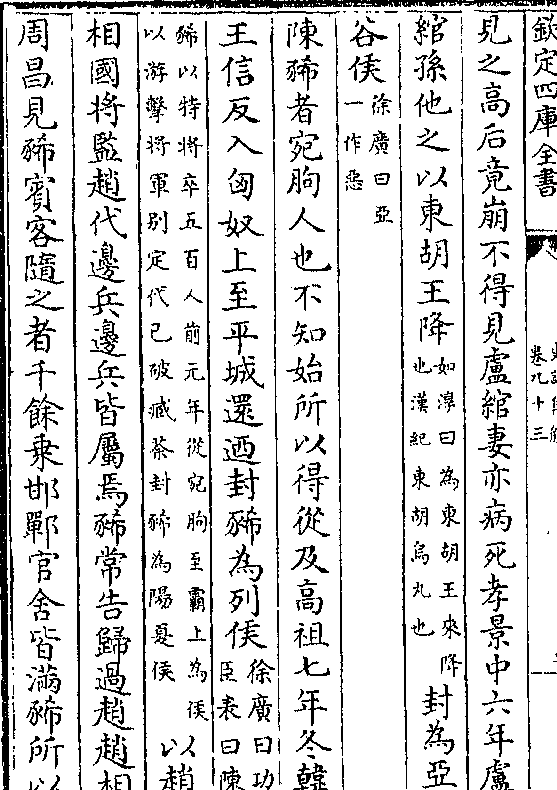 欽定四庫全書
卷九十三
見之高后竟崩不得見盧綰妻亦病死孝景中六年盧
綰孫他之以東胡王降如淳曰為東胡王來降也漢紀東胡烏丸也封為亞
谷侯徐廣曰亞一作惡
陳豨者宛朐人也不知始所以得從及高祖七年冬韓
王信反入匈奴上至平城還迺封豨為列侯徐廣曰功臣表曰陳
豨以特將卒五百人前元年從宛朐至霸上為侯以游擊將軍别定代已破臧荼封豨為陽夏侯以趙
相國將監趙代邊兵邊兵皆屬焉豨常告歸過趙趙相
周昌見豨賔客隨之者千餘乗邯鄲官舍皆滿豨所以